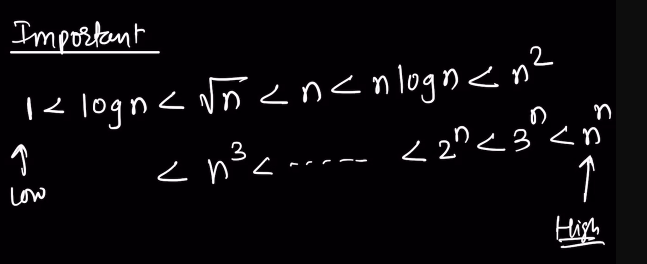 Important
1 < logn < √n < n < n logn < n²
< n³ < ----- < 2ⁿ < 3ⁿ < nⁿ
↑ ↑
Low High